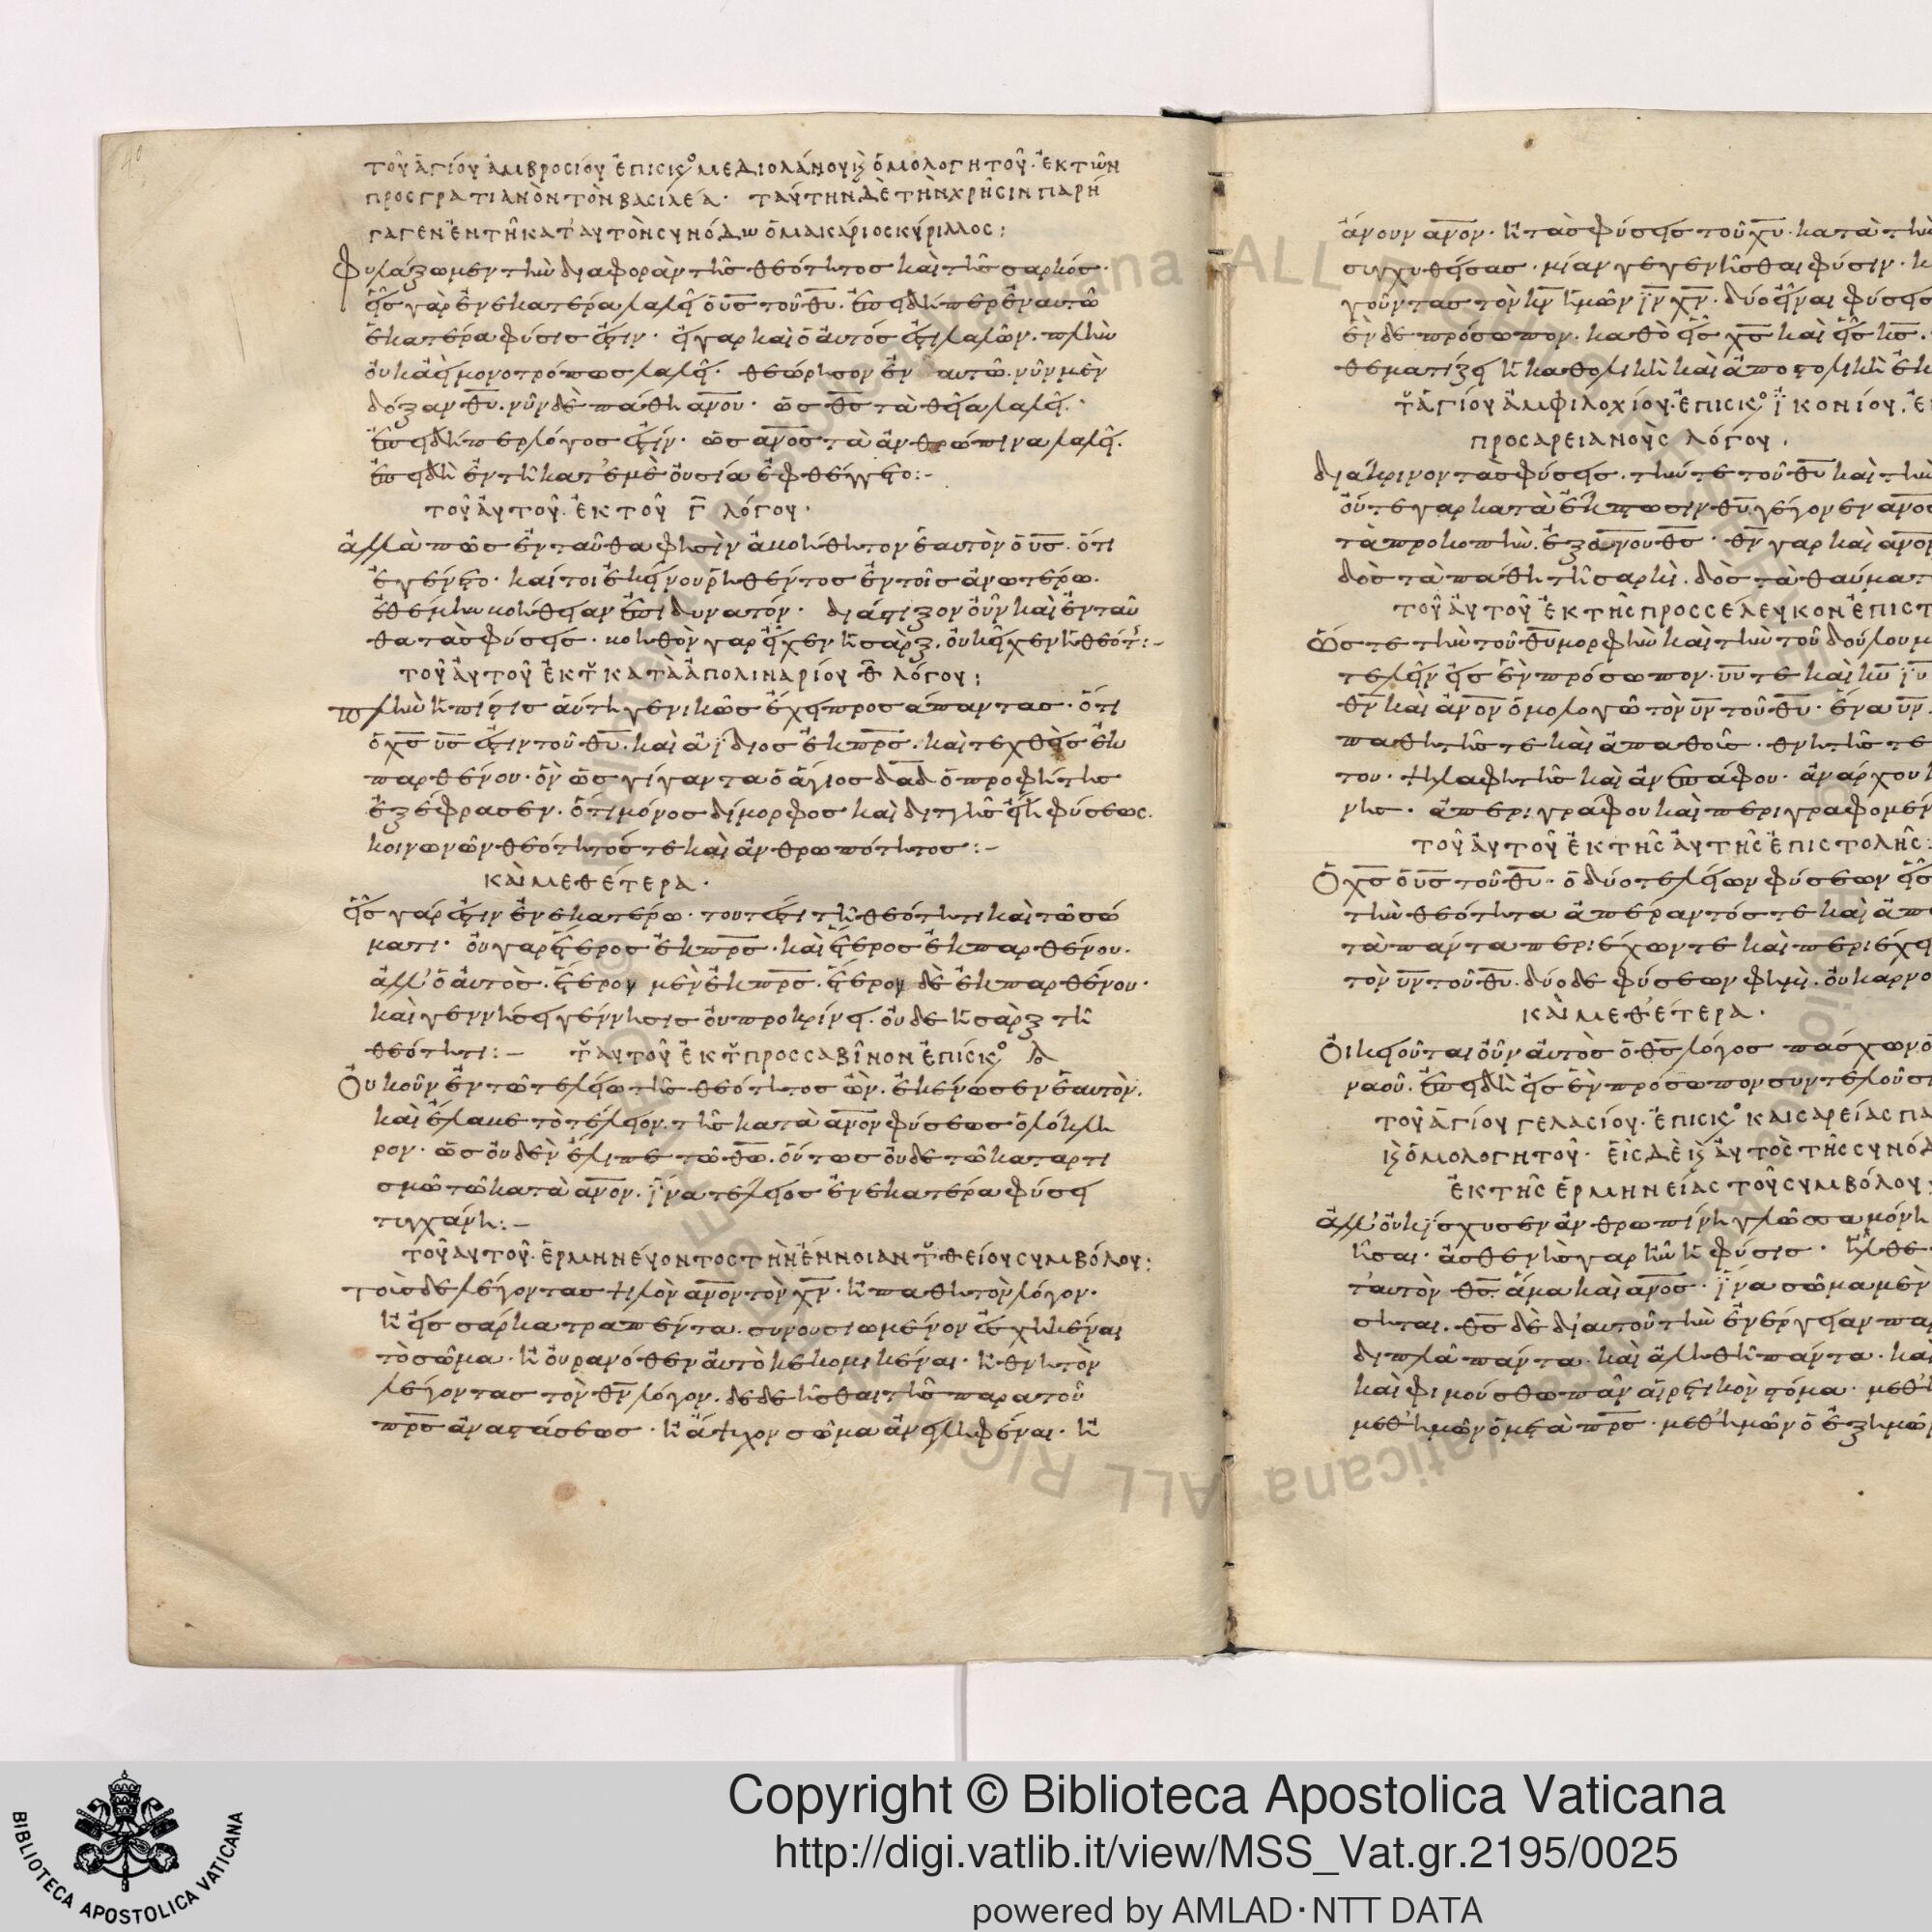 τοῦ ἁγίου ἀμβροσίου ἐπισκ̊ μεδιολάνου ϗ ὁμολογητοῦ· ἐκ τῶν
πρὸς γρατιανὸν τὸν βασιλέα· ταύτην δὲ τὴν χρῆσιν παρή
γαγεν ἐν τῇ κατ' αὐτὸν συνόδω ὁ μακάριος κύριλλος:
Φυλάξωμεν τὴν διαφορὰν τῆς θεότητος καὶ τῆς σαρκός·
εἷς γὰρ ἐν εκατέρα λαλεῖ ὁ υ̅ς̅ τοῦ θ̅υ̅· ἐπειδήπερ ἐν αυτῶ
ἑκατέρα φύσις ἐστιν· εἰ γαρ καὶ ὁ ἀυτός ἐστι λαλῶν· πλὴν
οὐκ ἀεὶ μονοτρόπως λαλεῖ· θεώρησον ἐν αυτῶ· νῦν μὲν
δόξαν θ̅υ̅· νῦν δὲ πάθη α̅ν̅ο̅υ̅· ὡς θ̅ς̅ τὰ θεῖα λαλεῖ·
ἐπειδήπερ λόγος ἐστίν· ὡς α̅ν̅ο̅ς̅ τὰ ἀνθρώπινα λαλεῖ·
ἐπειδὴ ἐν τῆ κατ' ἐμὲ οὐσία ἐφθέγγετο:-
τοῦ ἀυτοῦ· ἐκ τοῦ Γ̅ λόγου·
ἀλλὰ πῶς ἐνταῦθα φησὶν ἀκολήθητον ἑαυτὸν ὁ υ̅ς̅· ὅτι
ἐγένετο· καίτοι ἐκείνου ῥηθέντος ἐν τοῖς ἀνωτέρω·
θα τὰς φύσεις· · γαρ εἶχεν ἡ σάρξ· οὐκ εἶχεν ἡ θεότ:-
τοῦ ἀυτοῦ ἐκ τ̆ κατὰ ἀπολιναρίου θ̅ λόγου:
πλὴν ἡ πίστις αὕτη γενικῶς ἔχει προς άπαντας· ὅτι
ὁ χ̅ς̅ υ̅ς̅ ἐστιν τοῦ θ̅υ̅· καὶ ἀΐδιος ἐκ π̅ρ̅ς̅· καὶ τεχθεὶς ἐκ
παρθένου· ὃν ὡς γίγαντα ὁ ἅγιος δ̅α̅δ̅ ὁ προφήτης
ἐξέφρασεν· ὅτι μόνος δίμορφος καὶ διπλῆς εἴη φύσεως·
κοινωνῶν θεότητός τε καὶ ἀνθρωπότητος:-
καὶ μεθ' ἕτερα·
εἷς γάρ ἐστιν ἐν εκατέρω· τουτέστι τῆ θεότητι καὶ τῶ σώ
ματι· οὐ γαρ ἕτερος ἐκ π̅ρ̅ς̅· καὶ ἕτερος ἐκ παρθένου·
ἀλλ' ὁ ἀυτὸς· ἕτερον μὲν ἐκ π̅ρ̅ς̅· ἕτερον δὲ ἐκ παρθένου·
καὶ γεννήσει γέννησις οὐ προκρίνει· οὐδε ἡ σὰρξ τῆ
θεότητι:- τ̆ αυτοῦ ἐκ τ̆ προς σαβῖνον ἐπίσκ̊
Οὐκοῦν ἐν τῶ τελείω τῆς θεότητος ὢν· ἐκένωσεν ἑαυτὸν·
καὶ ἔλαβε τὸ τέλειον· τῆς κατὰ α̅ν̅ον φύσεως ὁλόκλη
ρον· ὡς οὐδὲν ἔλιπε τῶ θ̅ω̅· οὕτως οὐδε τῶ καταρτι
σμῶ τῶ κατὰ α̅ν̅ον· ἵνα τέλειος ἐν εκατέρα φύσει
τυγχάνη:-
τοῦ αυτοῦ· ἑρμηνεύοντος τὴν ἔννοιαν τ̆ θείου συμβόλου:
τοὺς δε λέγοντας ψιλὸν α̅ν̅ον τὸν χ̅ν̅· ἢ παθητὸν λόγον·
ἢ εἰς σάρκα τραπέντα· συνουσιωμένον ἐσχηκέναι
τὸ σῶμα· ἢ οὐρανόθεν ἀυτὸ κεκομικέναι· ἢ θνητὸν
λέγοντας τὸν θ̅ν̅ λόγον· δεδεῆσθαι τῆς παρα τοῦ
π̅ρ̅ς̅ ἀναστάσεως· ἢ ἄψυχον σῶμα ἀνειληφέναι· ἢ
ἄνουν α̅ν̅ον· ἢ τὰς φύσεις τοῦ χ̅υ̅· κατὰ
συγχυθείσας· μίαν γεγενῆσθαι φύσιν·
γοῦντας τὸν κ̅ν̅ ἡμῶν ι̅ν̅ χ̅ν̅· δύο εἶναι φύσεις
ἐν δε πρόσωπον· καθὸ εἷς χ̅ς̅ καὶ εἷς κ̅ς̅·
θεματίζει ἡ καθολικὴ καὶ ἀποστολικὴ
τ̆ ἁγίου ἀμφιλοχίου· ἐπισκ̊ ἰκονίου·
προς αρειανοὺς λόγου·
διάκρινον τὰς φύσεις· τήν τε τοῦ θ̅υ̅ καὶ τὴν
οὔτε γαρ κατὰ ἔκπτωσιν θ̅υ̅ γέγονεν α̅ν̅ος
τὰ προκοπὴν· ἐξ α̅ν̅ου θ̅ς̅· θ̅ν̅ γαρ καὶ α̅ν̅ον
δὸς τὰ πάθη τῆ σαρκὶ· δὸς τὰ θαύματ
τοῦ ἀυτοῦ ἐκ τῆς προς σέλευκον
ὥστε τὴν τοῦ θ̅υ̅ μορφὴν καὶ τὴν τοῦ δούλου
τελεῖν εἰς ἓν πρόσωπον· υ̅υ̅ τε καὶ κ̅υ̅
θ̅ν̅ καὶ α̅ν̅ον ὁμολογῶ τὸν υ̅ν̅ τοῦ θ̅υ̅· ἕνα υ̅ν̅
παθητῆς τε καὶ ἀπαθοῦς· θνητῆς τε
του· ψηλαφητῆς καὶ ἀνεπάφου· ἀνάρχου
νης· ἀπεριγράφου καὶ περιγραφομέν
τοῦ ἀυτοῦ ἐκ τῆς ἀυτῆς ἐπιστολῆς:
Ὁ χ̅ς̅ ὁ υ̅ς̅ τοῦ θ̅υ̅· ὁ δύο τελείων φύσεων εἷς
τὴν θεότητα ἀπέραντός τε καὶ
τὰ πάντα περιέχων τε καὶ
τὸν υ̅ν̅ τοῦ θ̅υ̅· δύο δε φύσεων φημὶ· οὐκ
καὶ μεθ' ἕτερα·
Οἰκειοῦται οὖν ἀυτὸς ὁ θ̅ς̅ λόγος πάσχων
ναοῦ· ἐπειδὴ εἰς ἓν πρόσωπον
τοῦ ἁγίου γελασίου· ἐπισκ̊ καισαρείας
ϗ ὁμολογητοῦ· εἷς δὲ ϗ ἀυτὸς τῆς συνόδ
ἐκ τῆς ἑρμηνείας τοῦ συμβόλου
ἀλλ' οὐκ ἴσχυσεν ἀνθρωπίνη γλῶσσα μόνη
ἀσθενὴς γαρ ἦν ἡ φύσις·
ταυτὸν θ̅ς̅ ἅμα καὶ α̅ν̅ος· ἵνα σῶμα μὲν
σηται· θ̅ς̅ δὲ δι' αυτοῦ τὴν ἐνέργειαν
διπλᾶ πάντα· καὶ ἀληθῆ πάντα·
καὶ φιμούσθω πᾶν αἱρετικὸν στόμα·
μεθ' ἡμῶν ὁ μετὰ π̅ρ̅ς̅· μεθ' ἡμῶν ὁ ἐξ ἡμῶν
Copyright © Biblioteca Apostolica Vaticana
http://digi.vatlib.it/view/MSS_Vat.gr.2195/0025
powered by AMLAD·NTT DATA
BIBLIOTECA APOSTOLICA VATICANA